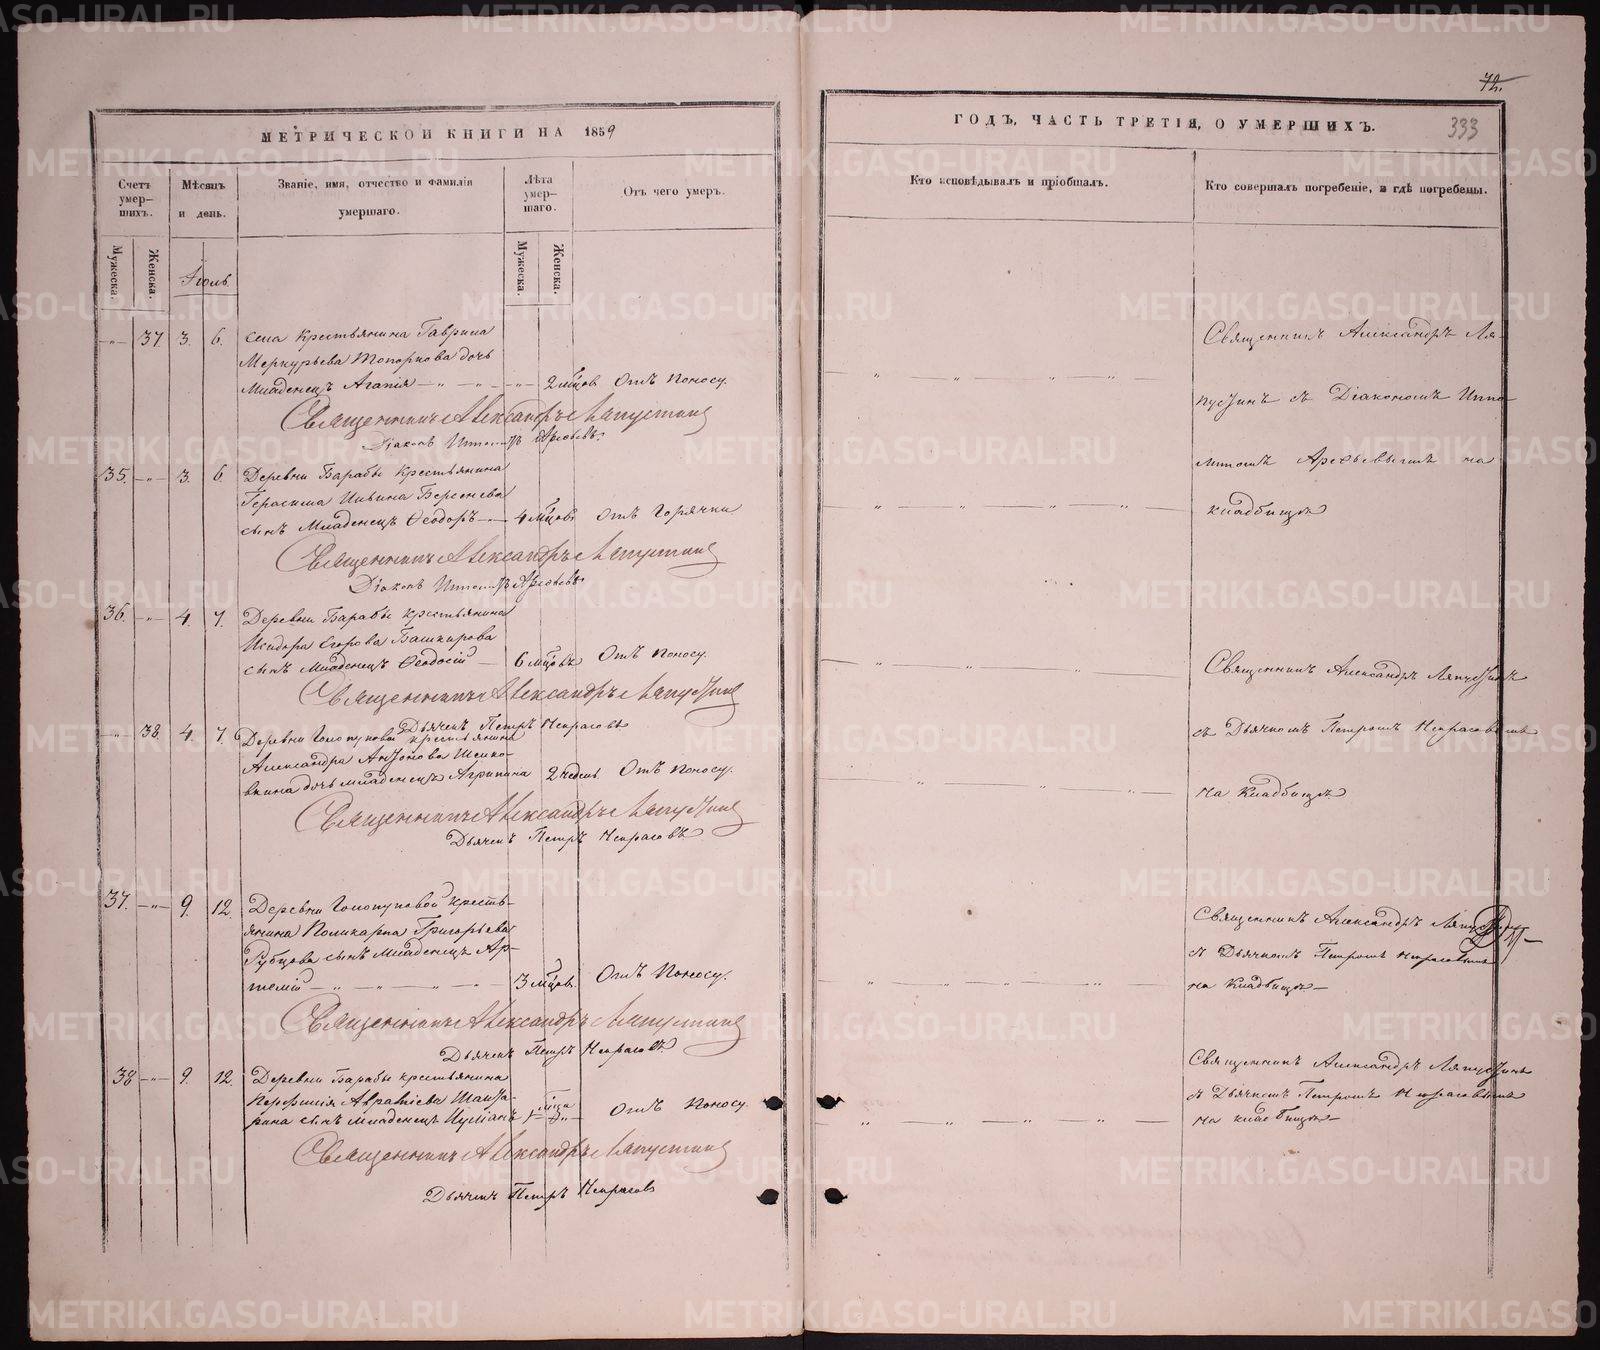 МЕТРИЧЕСКОЙ КНИГИ НА 1859
ГОДЪ, ЧАСТЬ ТРЕТІЯ, О УМЕРШИХЪ.
72.
333
Счетъ умер-шихъ.
Мѣсяцъ и день.
Званіе, имя, отчество и фамилія умершаго.
Лѣта умер-шаго.
Отъ чего умеръ.
Кто исповѣдывалъ и пріобщалъ.
Кто совершалъ погребеніе, и гдѣ погребены.
Мужеска.
Женска.
Іюль
Мужеска.
Женска.
-"- 37. 3. 6. села Крестьянина Гаврила
Меркурьева Топоркова дочь
Младенецъ Агапія - " - " - 2 мѣцов Отъ Поносу.
Священникъ Александръ Ляпустинъ
Діаконъ Арефьевъ.
Священникъ Александръ Ля-
пустинъ съ Діакономъ Иппо-
литомъ Арефьевымъ на
кладбищѣ
35. -"- 3. 6. Деревни Барабы Крестьянина
Герасима Ильина Берсенева
сынъ Младенецъ Ѳеодоръ - 4 мѣцовъ Отъ Горячки
Священникъ Александръ Ляпустинъ
Діаконъ Арефьевъ
36. -"- 4. 7. Деревни Барабы Крестьянина
Исидора Егорова Башкирова
сынъ Младенецъ Ѳеодосій - 6 мѣцовъ Отъ Поносу.
Священникъ Александръ Ляпустинъ
Дьячекъ Петръ Некрасовъ
Священникъ Александръ Ляпустинъ
съ Дьячкомъ Петромъ Некрасовымъ
на Кладбищѣ
-"- 38. 4. 7. Деревни Голопуповой крестьянина
Александра Антонова
дочь младенецъ Агрипина 2 недѣль Отъ Поносу.
Священникъ Александръ Ляпустинъ
Дьячекъ Петръ Некрасовъ
37. -"- 9. 12. Деревни Голопуповой Кресть-
янина Поликарпа Григорьева
Рубцова сынъ Младенецъ Ар-
темій - " - " - " - 3 мѣцов. Отъ Поносу.
Священникъ Александръ Ляпустинъ
Дьячекъ Петръ Некрасовъ.
Священникъ Александръ
съ Дьячкомъ Петромъ Некрасовымъ
на Кладбищѣ -
38 -"- 9. 12. Деревни Барабы крестьянина
сынъ Младенецъ 1 мѣца Отъ Поносу.
Священникъ Александръ Ляпустинъ
Дьячекъ Петръ Некрасовъ
Священникъ Александръ Ляпустинъ
съ Дьячкомъ Петромъ Некрасовымъ
на кладбищѣ -
METRIKI.GASO-URAL.RU